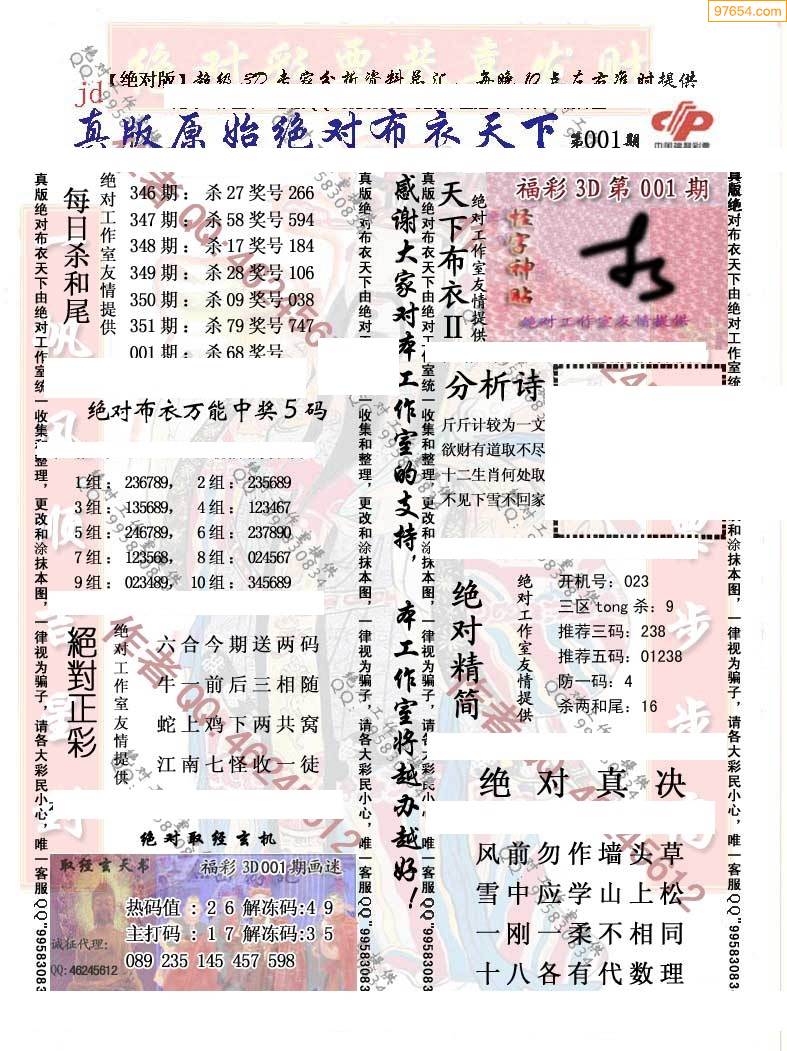 97654.com
绝对彩票恭喜发财
【绝对版】超级3D专家分析资料总汇，每晚10点左右准时提供
jd
真版原始绝对布衣天下 第001期
中国福利彩票
每日杀和尾
绝对工作室友情提供
346期：杀27奖号266
347期：杀58奖号594
348期：杀17奖号184
349期：杀28奖号106
350期：杀09奖号038
351期：杀79奖号747
001期：杀68奖号
绝对布衣万能中奖5码
1组：236789， 2组：235689
3组：135689， 4组：123467
5组：246789， 6组：237890
7组：123568， 8组：024567
9组：023489， 10组：345689
絕對正彩
绝对工作室友情提供
六合今期送两码
牛一前后三相随
蛇上鸡下两共窝
江南七怪收一徒
绝对取经玄机
取经玄天书
福彩3D001期画迷
热码值：26解冻码:49
主打码：17解冻码:35
089 235 145 457 598
诚征代理:
QQ:46245612
感谢大家对本工作室的支持，本工作室将越办越好！
天下布衣II
绝对工作室友情提供
福彩3D第001期
怪字神贴
绝对工作室友情提供
分析诗
斤斤计较为一文
欲财有道取不尽
十二生肖何处取
不见下雪不回家
绝对精简
绝对工作室友情提供
开机号：023
三区tong杀：9
推荐三码：238
推荐五码：01238
防一码：4
杀两和尾：16
绝对真决
风前勿作墙头草
雪中应学山上松
一刚一柔不相同
十八各有代数理
真版绝对布衣天下由绝对工作室统一收集和整理，更改和涂抹本图，一律视为骗子，请各大彩民小心，唯一客服QQ"99583083
真版绝对布衣天下由绝对工
收集和整理，更改和涂抹本图，一律视为骗子，请各大彩民小心，唯一客服QQ"99583083
真版绝对布衣天下由绝对工作室统一收集和整理，更改和涂抹本图，一律视为骗子，请各大彩民小
唯一客服QQ"99583083
真版绝对布衣天下由绝对工作室统
和涂抹本图，一律视为骗子，请各大彩民小心，唯一客服QQ"99583083
作者QQ:46245612